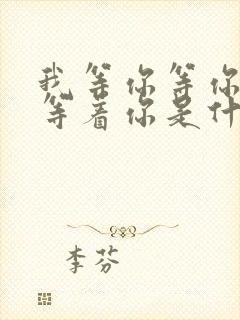 我等你等你
等着你是什
李芬